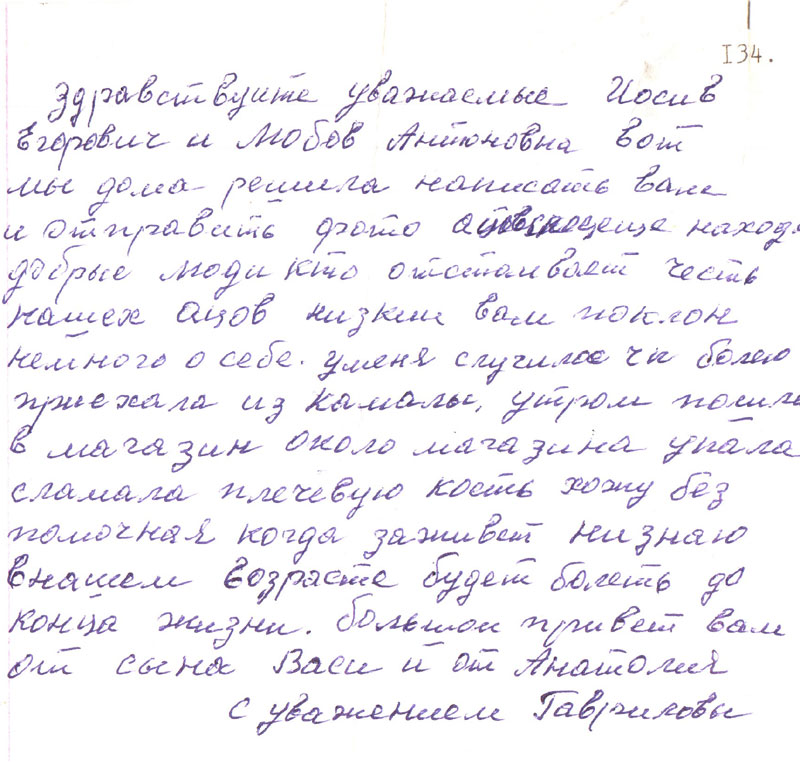 134.
Здравствуйте уважаемые Иосив
Егорович и Любов Антоновна вот
мы дома решила написать вам
и отправить фото еще наход
добрые люди кто отстаивает честь
нашех оцов низкии вам поклон
немного о себе. уменя случилос чп
приехала из Камалы, утром пошла
в магазин около магазина упала
сламала плечевую кость хожу без
помочная когда заживет низнаю
внашем возрасте будет болеть до
конца жизни. большои привет вам
от сына Васи и от Анатолия
с уважением Гавриловы